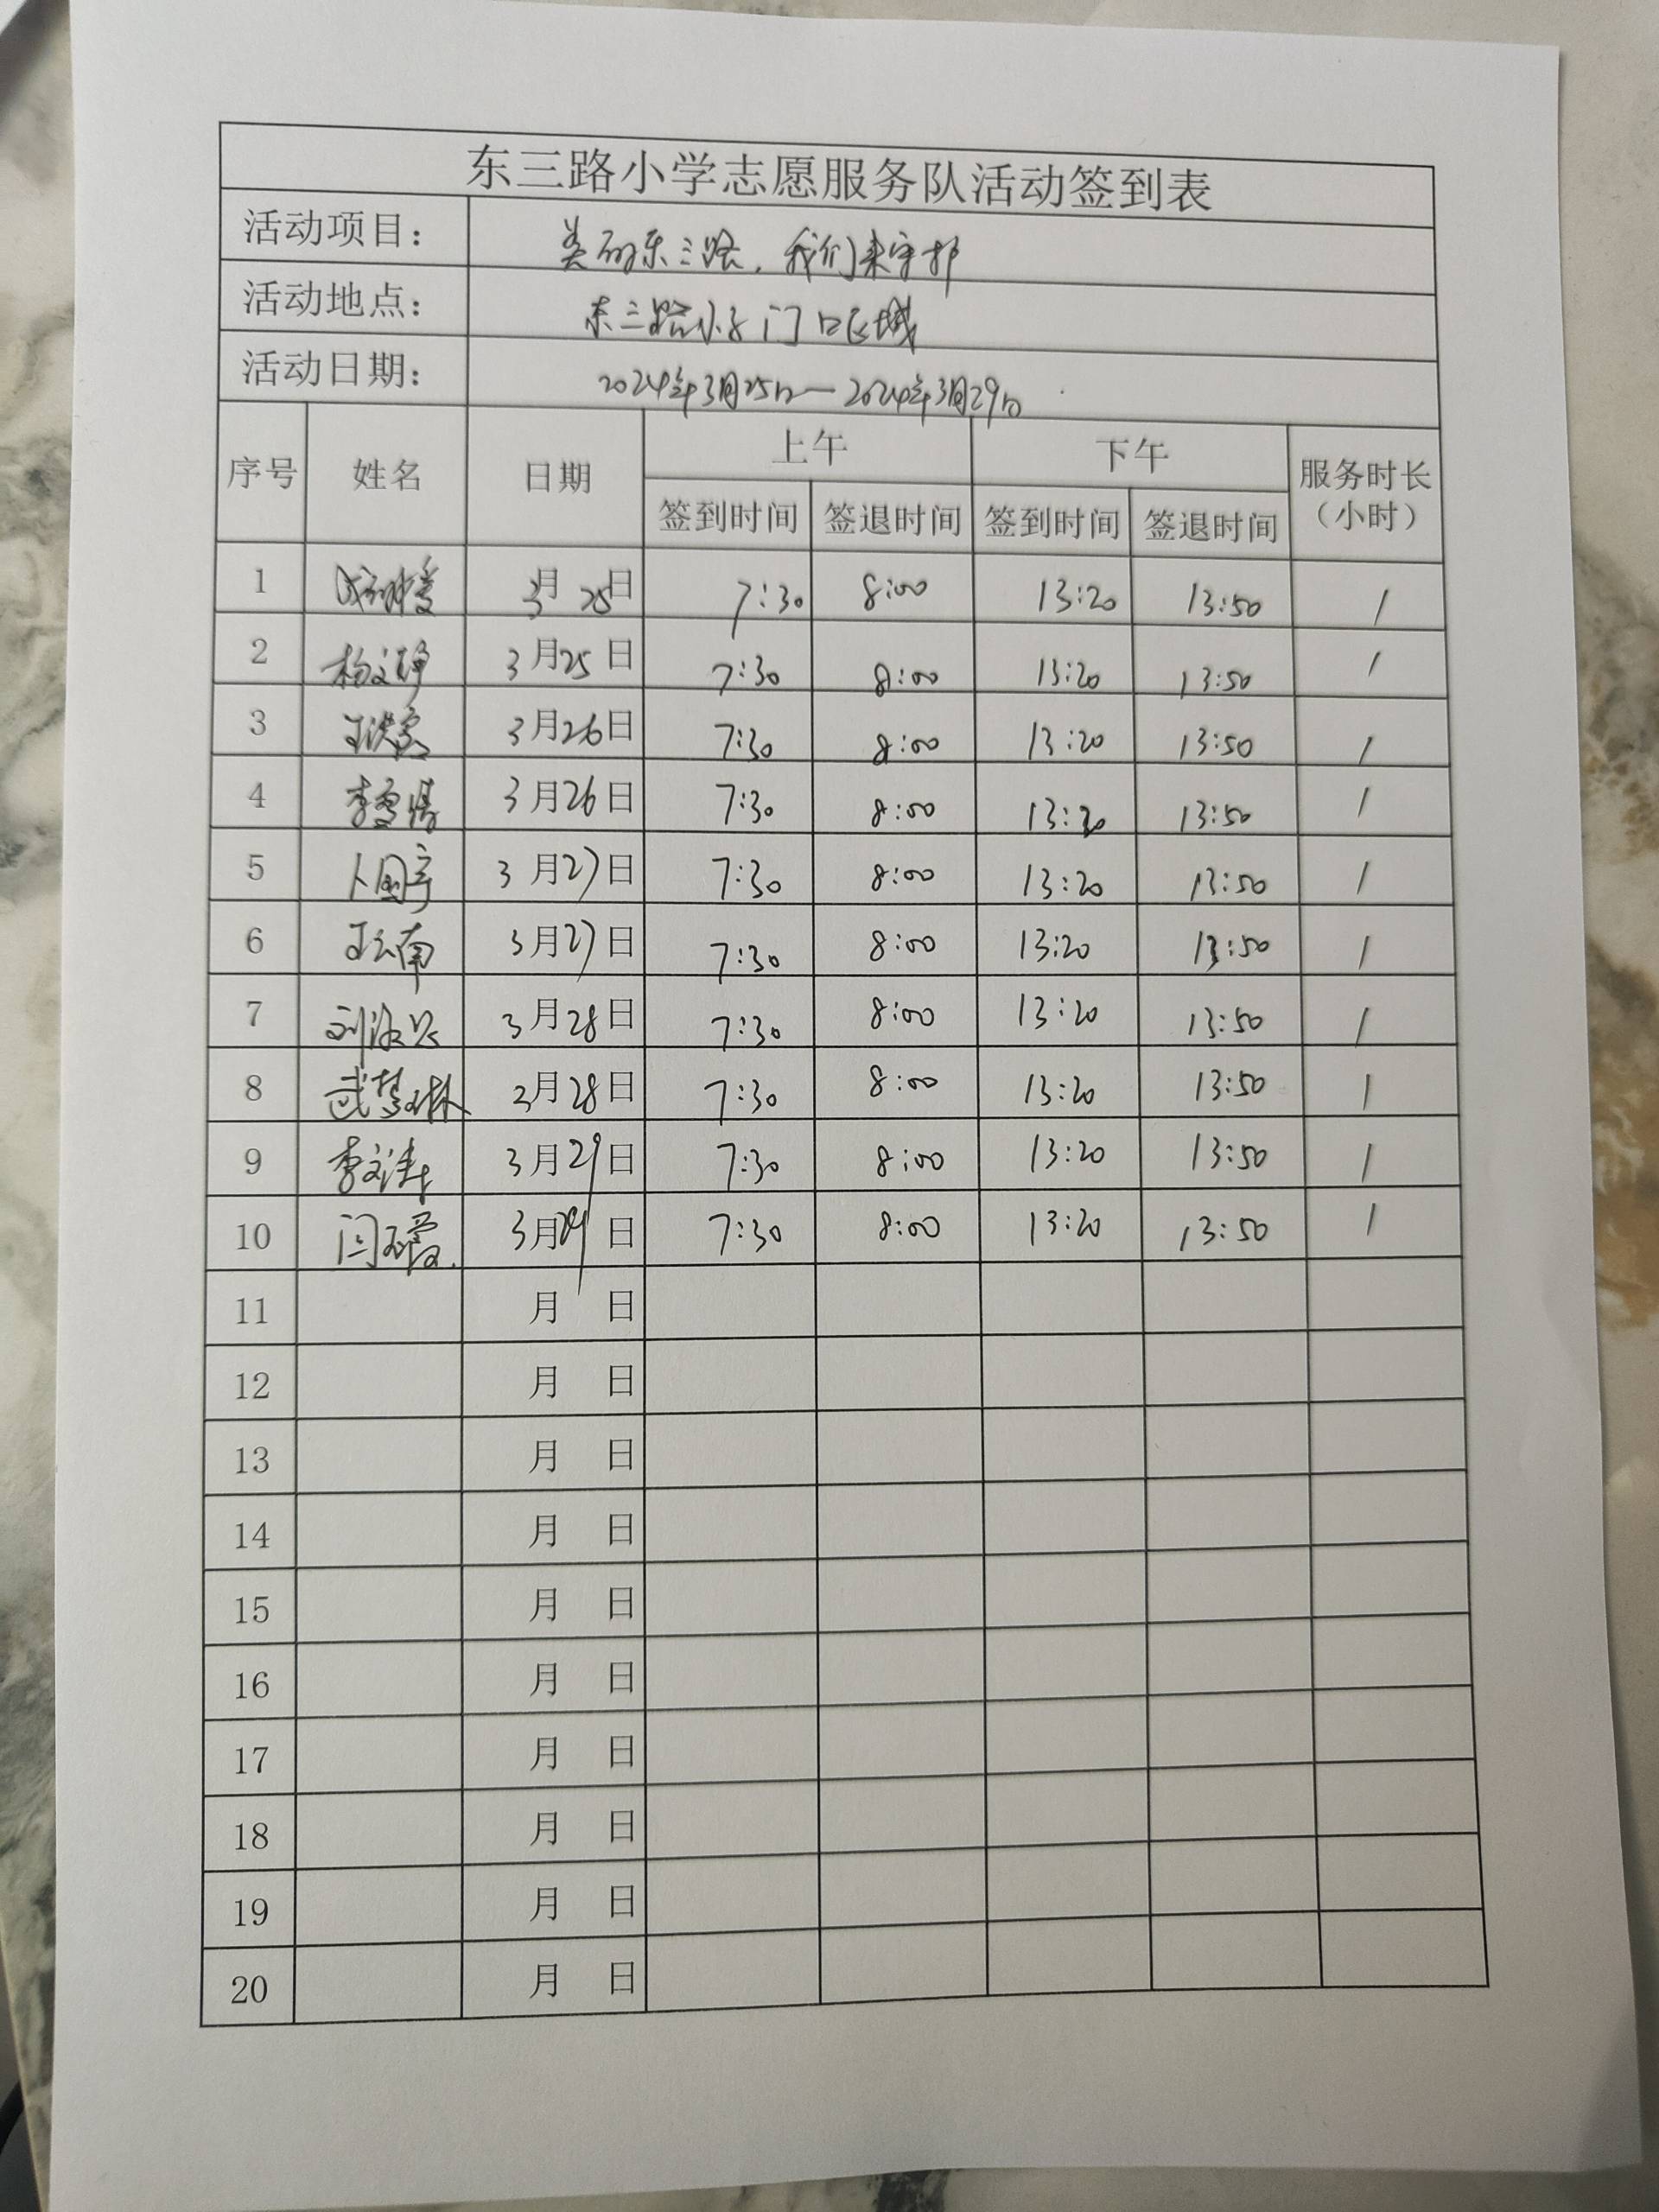 东三路小学志愿服务队活动签到表
活动项目： 美丽东三路，我们来守护
活动地点： 东三路小学门口区域
活动日期： 2024年3月25日—2024年3月29日
序号 姓名 日期 上午 下午 服务时长（小时）
签到时间 签退时间 签到时间 签退时间
1 3月25日 7:30 8:00 13:20 13:50 1
2 杨文静 3月25日 7:30 8:00 13:20 13:50 1
3 3月26日 7:30 8:00 13:20 13:50 1
4 李雪倩 3月26日 7:30 8:00 13:20 13:50 1
5 卜国亭 3月27日 7:30 8:00 13:20 13:50 1
6 王云南 3月27日 7:30 8:00 13:20 13:50 1
7 3月28日 7:30 8:00 13:20 13:50 1
8 武梦琳 3月28日 7:30 8:00 13:20 13:50 1
9 李文涛 3月29日 7:30 8:00 13:20 13:50 1
10 3月29日 7:30 8:00 13:20 13:50 1
11 月 日
12 月 日
13 月 日
14 月 日
15 月 日
16 月 日
17 月 日
18 月 日
19 月 日
20 月 日